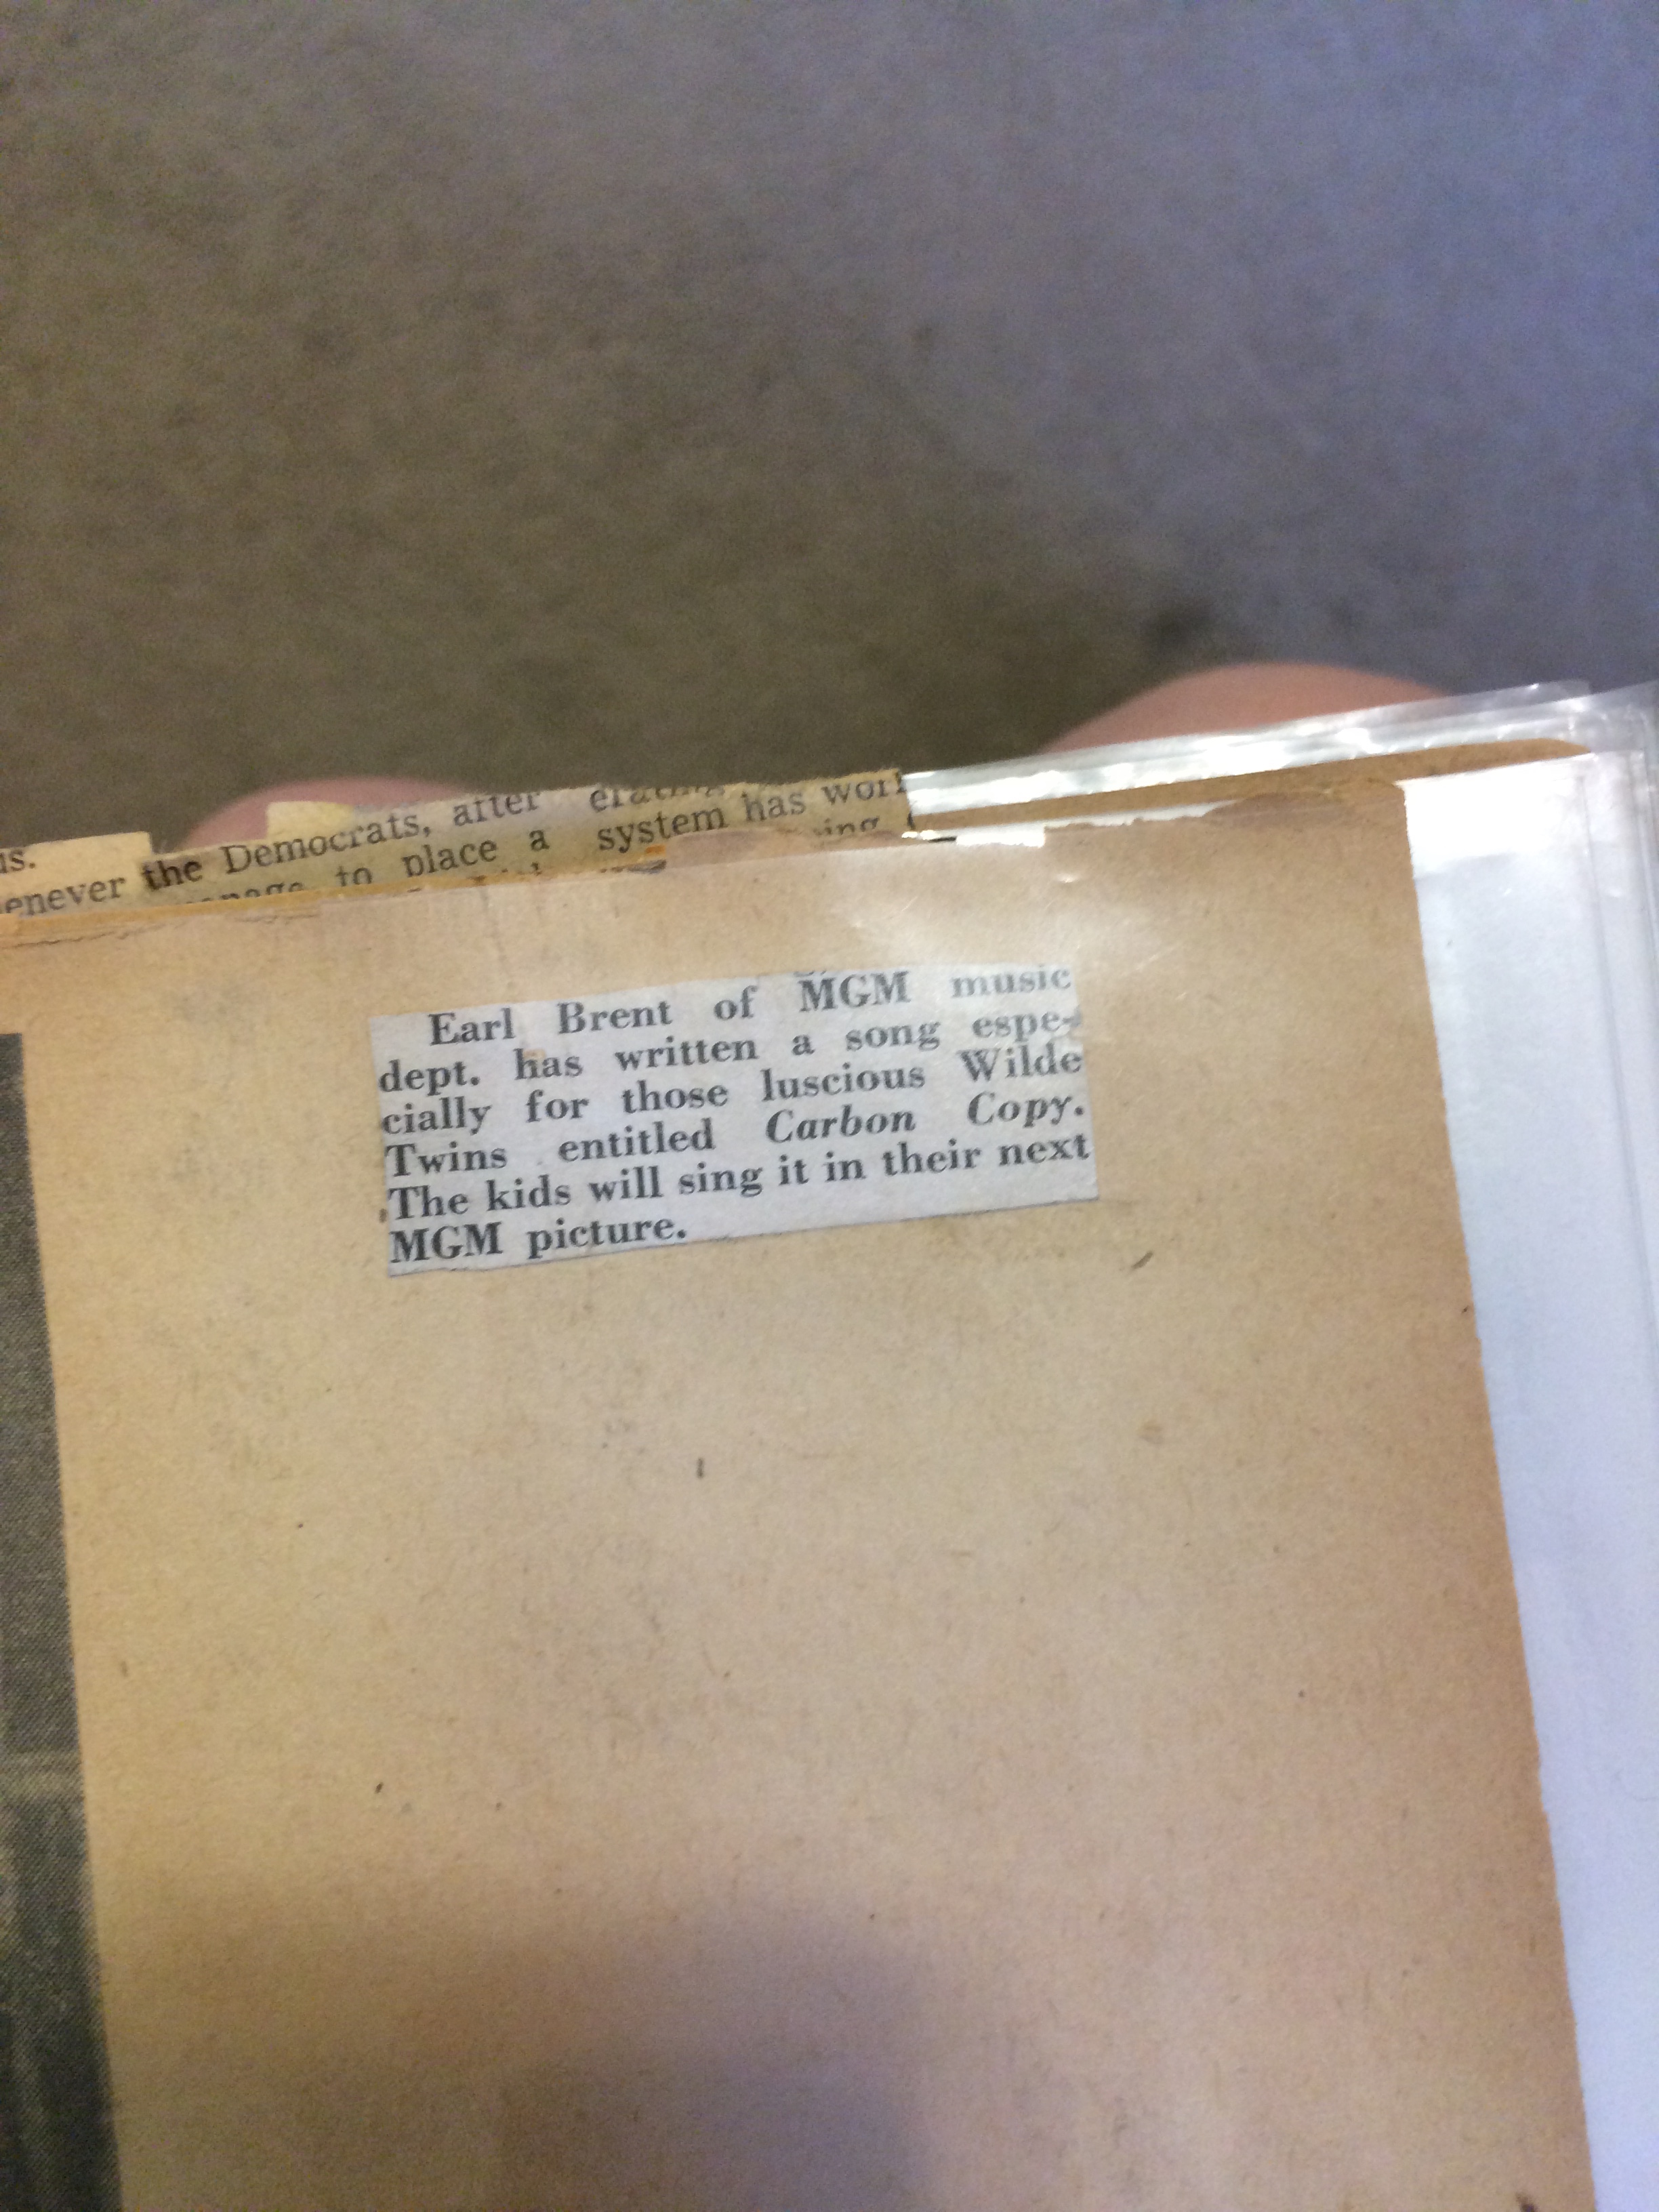 us.
enever the Democrats, after
to place a
system has
Earl Brent of MGM music
dept. has written a song espe-
cially for those luscious Wilde
Twins entitled Carbon Copy.
The kids will sing it in their next
MGM picture.